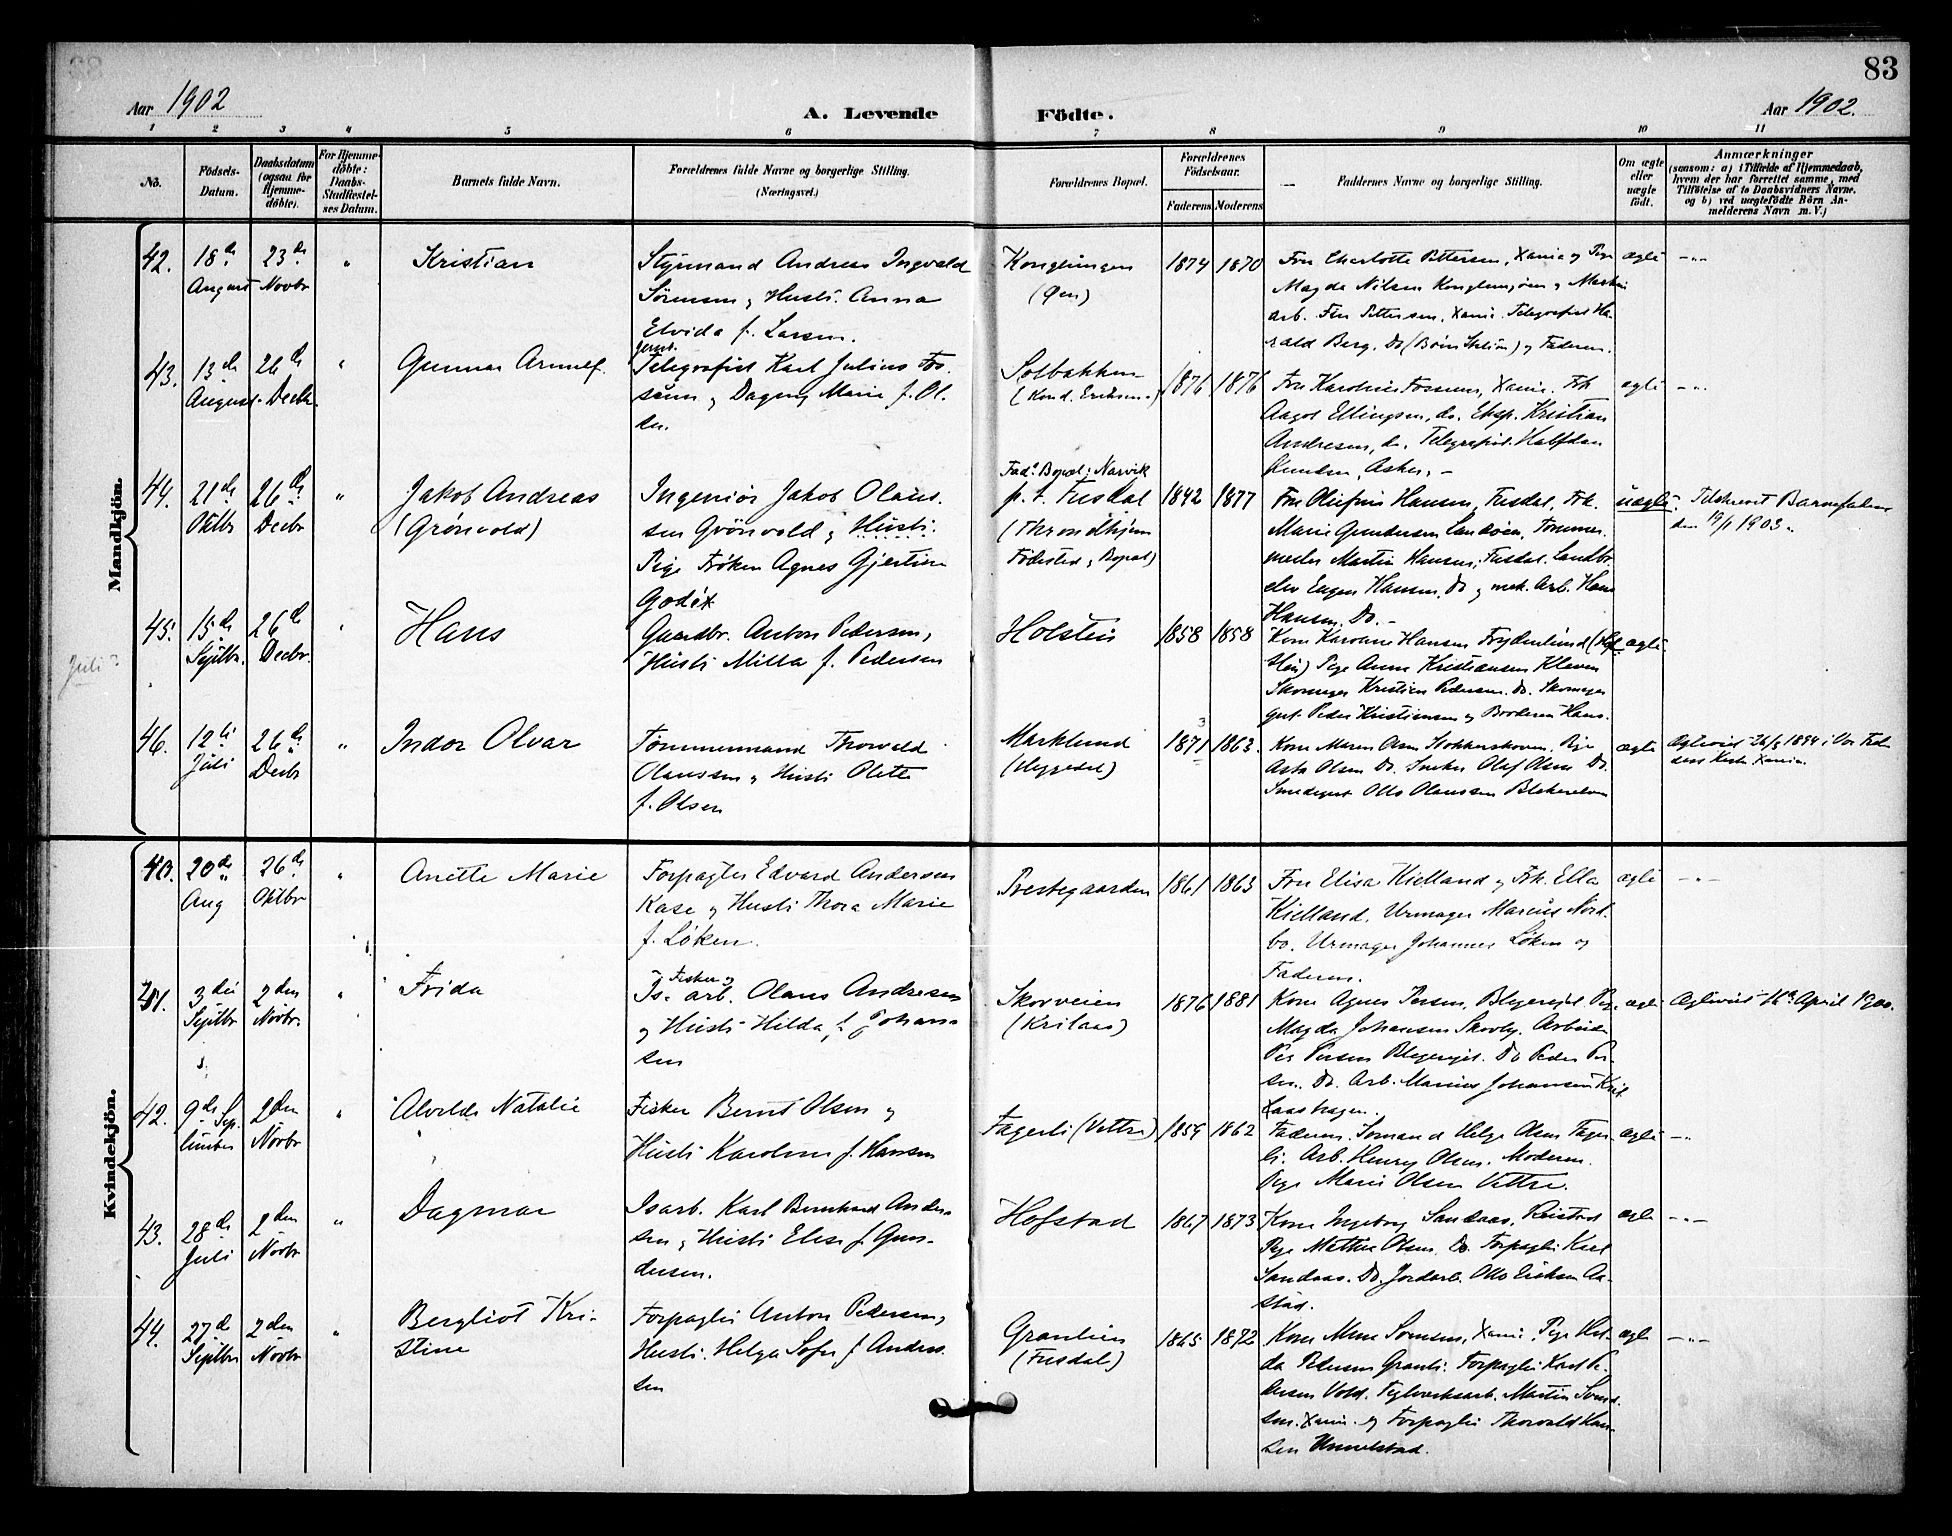 83
Aar 1902
A. Levende Födte.
Aar 1902.
1 2 3 4 5 6 7 8 9 10 11
No.
Födsels-Datum.
Daabsdatum (ogsaa for Hjemmedöbte).
For Hjemmedöbte: Daabs-Stadfæstelses Datum.
Barnets fulde Navn.
Forældrenes fulde Navne og borgerlige Stilling. (Næringsvei.)
Forældrenes Bopæl.
Forældrenes Födselsaar.
Faderens Moderens
Faddernes Navne og borgerlige Stilling.
Om ægte eller uægte födt.
Anmærkninger
(saasom: a) i Tilfælde af Hjemmedaab,
hvem der har forrettet samme, med
Tilföielse af to Daabsvidners Navne,
og b) ved uægtefödte Börn An-
melderens Navn m. V.)
Mandkjön.
42. 18de August 23de Novbr " Kristian
Styrmand Andreas Ingvald
Sørensen og Hustr. Anna
Elvida f. Larsen.
Konglungen
(Øen)
1874 1870
Fru Charlotte Pettersen, Xania og Pige
Magda Nilsen Konglungen og Maskin
arb. Finn Pettersen, Xania. Telegrafist Ha-
rald Berg. Do (Bøin Station) og Faderen.
ægte -"-
43. 13de August. 26de Decbr. " Gunnar Arnulf.
Jernb.
Telegrafist Karl Julius Fos-
sum og Dagny Marie f. Ol-
sen.
Solbakken
(Kond. Eriksen.)
1876 1876
Fru Karoline Fossum, Xania. Frk
Aagot Ellingsen, do. Eksp. Kristian
Andresen, do. Telegrafist Halfdan
Knudsen, Asker. -
ægte -"-
44. 21de Oktbr 26de Decbr " Jakob Andreas
(Grönvold)
Ingeniör Jakob Olaus-
sen Grönvold og Hustr.
Pige Frøken Agnes Gjertine
Godøt
Fad. Bopæl: Narvik
p. t. Fusdal
(Throndhjem
Fødested og Bopæl)
1842 1877
Fru Olufine Hansen, Fusdal, Frk.
Marie Gundersen Landøen, Tømmer-
mester Martin Hansen, Fusdal. Landbr.
elev Eugen Hansen, Do og mek. Arb. Hans
Hansen. Do. -
uægte. Tilskrevet Barnefaderen
den 19/1 1903.
45. 15de Septbr. 26de Decbr. " Hans
Juli?
Gaardbr. Anton Pedersen,
Hustr. Milla f. Pedersen
Holstein
1858 1858
Kone Karoline Hansen Frydenlund (Hol-
stein) Pige Anna Kristiansen Kleven
Skomager Kristian Pedersen. Do. Skomager
gut. Peder Kristiansen og Broderen Hans.
ægte
46. 12te Juli 26de Decbr " Indor Olvar
Tømmermand Thorvald
Olaussen og Hustr. Olette
f. Olsen
Marklund
(Heggedal)
1871 3 1863.
Kone Maren Olsen Stokkerskoven. Pige
Asta Olsen Do. Snekker Olaf Olsen Do.
Smedegut Otto Olaussen Blakerelven
ægte
Ægteviet 26/8 1894 i Vor Frel-
sers Kirke Xania.
Kvindekjön.
40. 20de Aug 26de Oktbr " Anette Marie
Forpagter Edvard Andersen
Kase og Hustr. Thora Marie
f. Løken.
Prestegaarden
1861 1863
Fru Elisa Kielland og Frk. Ella
Kielland. Urmager Marius Nord-
bo. Urmager Johannes Løken og
Faderen.
ægte -"-
41. 3die Septbr 2den Novbr. " Frida
Fisker og
Is. arb. Olaus Andresen
og Hustr. Hilda f. Johan-
sen
Skorveien
(Krilaas)
1876 1881
Kone Agnes Persen, Blegerejet. Pige
Magda Johansen Skovly. Arbeider
Per Persen Blegerejet. Do Peder Per-
sen. Do. Arb. Marius Johansen Kril-
laashagen.
ægte Ægteviet 16de April 1900.
42. 9de September 2den Novbr " Alvilde Natalie
Fisker Bernt Olsen og
Hustr. Karoline f. Hansen
Fagerli (Vettre)
1859 1862
Faderen. Sømand Helge Olsen Fager-
li. Arb. Henry Olsen. Moderen.
Pige Marie Olsen Vettre.
ægte -"-
43. 28de Juli 2den Novbr " Dagmar
Isarb. Karl Bernhard Ander-
sen og Hustr. Elise f. Gun-
dersen.
Hofstad
1867 1873
Kone Ingeborg Sandaas, Reistad
Pige Mathea Olsen. Do. Forpagter Karl
Sandaas. Do. Jordarb. Otto Eriksen Aa-
stad.
ægte -"-
44. 27de Septbr 2den Novbr " Bergliot Kri-
stine
Forpagter Anton Pedersen,
Hustr. Helga Sofie f. Anders-
sen
Granlien
(Fusdal)
1865 1872
Kone Mina Sørensen, Xania. Pige Hul-
da Pedersen Granli. Forpagter Karl Pe-
dersen Vold. Teglverksarb. Martin Svend-
sen. Xania. og Forpagter Thorvald Han-
sen Unnelstad.
ægte -"-